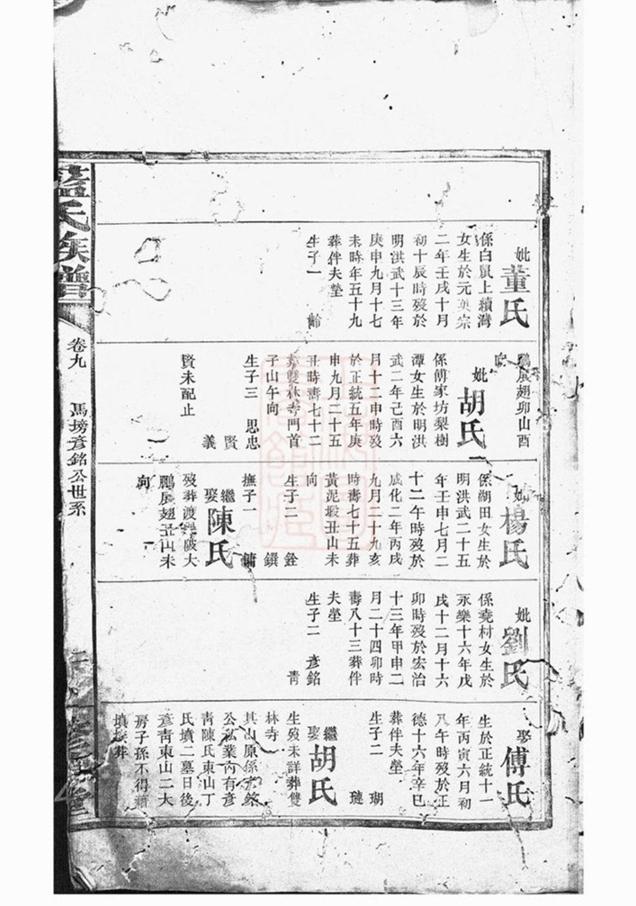 妣董氏
係白鼠上積灣
女生於元英宗
二年壬戌十月
初十辰時歿於
明洪武十三年
庚申九月十七
未時年五十九
葬伴夫塋
生子一
鵬展翅卯山酉
妣胡氏
係傅家坊梨樹
潭女生於明洪
武二年己酉六
月十二申時歿
於正統五年庚
申九月二十五
丑時壽七十二
葬雙林寺門首
子山午向
生子三 思忠
賢
義
賢未配止
妣楊氏
係湖田女生於
明洪武二十五
年壬申七月二
十二午時歿於
成化二年丙戌
九月二十九亥
時壽七十五葬
黃泥塅丑山未
向
生子二 銓
鎮
撫子一 鏞
繼娶陳氏
歿葬渡 陂大
鵬展翅丑山未
向
妣劉氏
係堯村女生於
永樂十六年戊
戌十二月十六
卯時歿於宏治
十三年甲申二
月二十四卯時
壽八十三葬伴
夫塋
生子二 彥銘
青
娶傅氏
生於正統十一
年丙寅六月初
八午時歿於正
德十六年辛巳
葬伴夫塋
生子二 瑚
璉
繼娶胡氏
生歿未詳葬雙
林寺
其山原係彥銘
公私業內有彥
青陳氏東山丁
氏墳二墓日後
彥青東山二大
房子孫不得
墳 葬
藍氏族譜
卷九
馬塝彥銘公世系